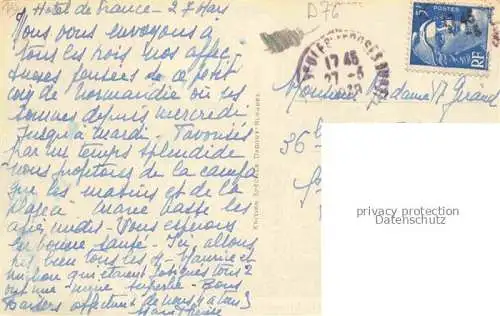 Hotel de France - 27 Mars
D76
Nous vous envoyons à
tous les trois nos affec-
tueuses pensées de ce petit
coin de Normandie où nous
sommes depuis mercredi
jusqu'à mardi. Favorisés
par un temps splendide
nous profitons de la campa
gne les matins et de la
plage à marée basse les
après midis - Nous espérons
bonne santé - Ici, allons
très bien tous les 4 - Maurice et
qui étaient fatigués tous 2
ont une mine superbe - Bons
baisers affectueux de nous 4 à tous 3
POSTES
RF
17 45
27-3
Monsieur Madame A. Girard
36
privacy protection
Datenschutz